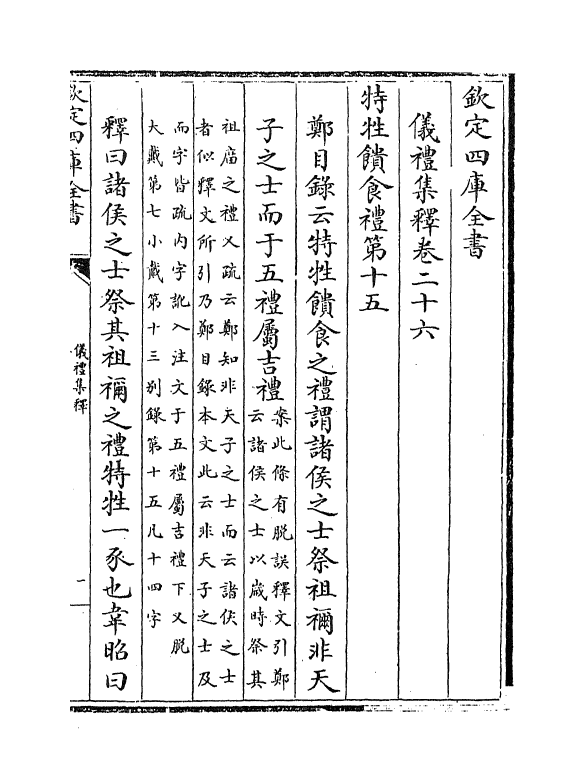 欽定四庫全書
儀禮集釋卷二十六
特牲饋食禮第十五
鄭目錄云特牲饋食之禮謂諸侯之士祭祖禰非天
子之士而于五禮屬吉禮
案此條有脱誤釋文引鄭
云諸侯之士以歲時祭其
祖廟之禮又疏云鄭知非天子之士而云諸侯之士
者似釋文所引乃鄭目錄本文此云非天子之士及
而字皆疏内字訛入注文于五禮屬吉禮下又脱
大戴第七小戴第十三别錄第十五凡十四字
釋曰諸侯之士祭其祖禰之禮特牲一豕也韋昭曰
欽定四庫全書
儀禮集釋
一